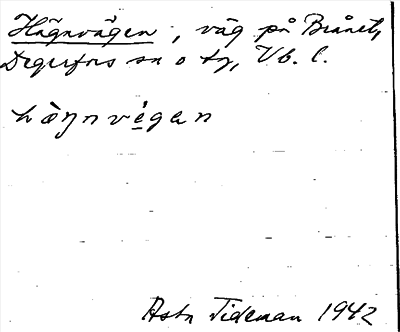 Hägnvägen, väg på Brånet,
Degerfors sn o tg, Vb. l.
hàŋnvégan
Asta Tideman 1942